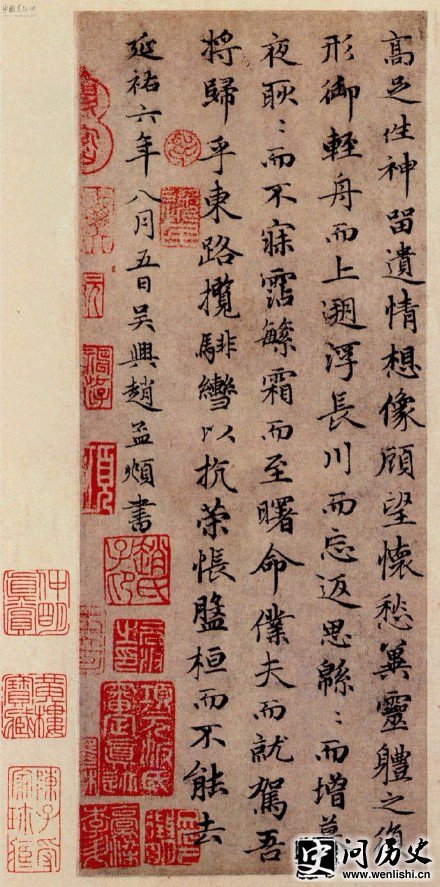 高足往神留遺情想像顧望懷愁冀靈軆之復
形御輕舟而上遡浮長川而忘返思緜〻而增慕
夜耿〻而不寐霑繁霜而至曙命僕夫而就駕吾
將歸乎東路攬騑轡以抗策悵盤桓而不能去
延祐六年八月五日吳興趙孟頫書
趙氏子印
項元汴氏審定真跡
问历史
www.wenlishi.cn